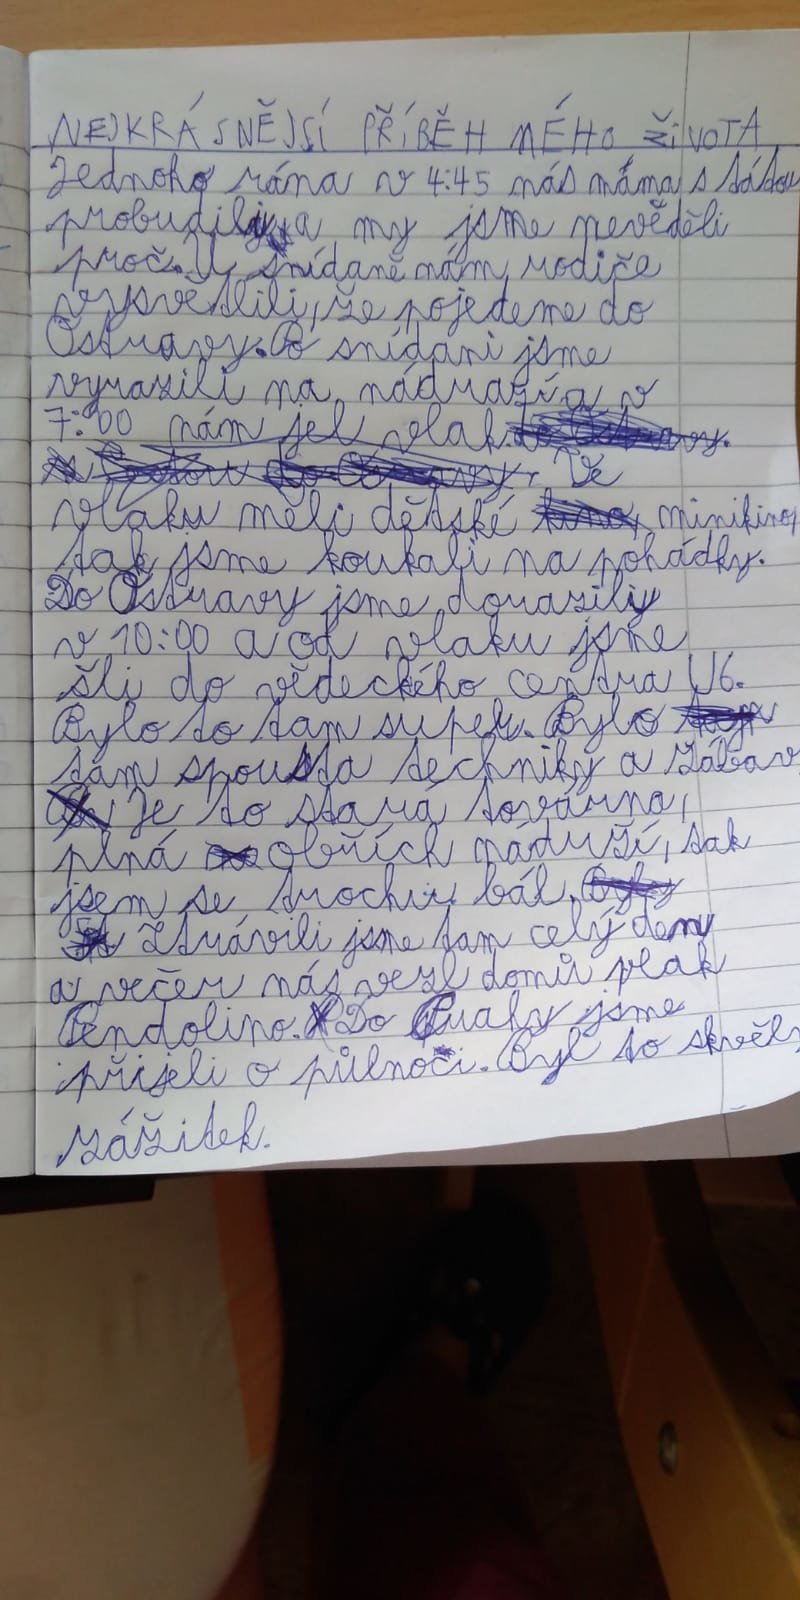 NEJKRÁSNĚJSÍ PŘÍBĚH MÉHO ŽIVOTA
Jednoho rána v 4:45 nás máma s tátou
probudili, a my jsme nevěděli
proč. U snídaně nám rodiče
vysvětlili, že pojedeme do
Ostravy. Po snídani jsme
vyrazili na nádraží a v
7:00 nám jel vlak do Ostravy.
do Ostravy. Ve
vlaku měli dětské kino, minikino,
tak jsme koukali na pohádky.
Do Ostravy jsme dorazily
v 10:00 a od vlaku jsme
šli do vědeckého centra U6.
Bylo to tam super. Bylo
tam spousta techniky a zábav
Je to stará továrna,
plná obřích nádrží, tak
jsem se trochu bál. Byly
Ztrávili jsme tam celý den
a večer nás vezl domů vlak
Pendolino. Do Prahy jsme
přijeli o půlnoči. Byl to skvělý
zážitek.